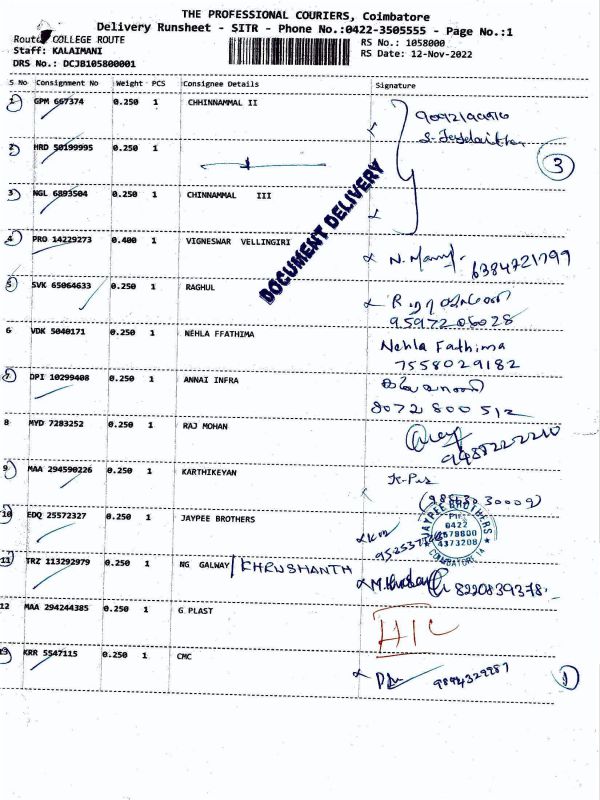 THE PROFESSIONAL COURIERS, Coimbatore
Delivery Runsheet - SITR - Phone No.:0422-3505555 - Page No.:1
COLLEGE ROUTE
RS No.: 1058000
Staff: KALAIMANI
RS Date: 12-Nov-2022
DRS No.: DCJB105800001
S No Consignment No Weight PCS Consignee Details Signature
1 GPM 667374 0.250 1 CHHINNAMMAL II
2 HRD 50199995 0.250 1
3
3 NGL 6893504 0.250 1 CHINNAMMAL III
DOCUMENT DELIVERY
4 PRO 14229273 0.400 1 VIGNESWAR VELLINGIRI
6384721799
5 SVK 65064633 0.250 1 RAGHUL
9597206028
6 VDK 5040171 0.250 1 NEHLA FFATHIMA Nehla Fathima
7558029182
7 DPI 10299408 0.250 1 ANNAI INFRA
8072 800 512
8 MYD 7283252 0.250 1 RAJ MOHAN
9 MAA 294590226 0.250 1 KARTHIKEYAN
10 EDQ 25572327 0.250 1 JAYPEE BROTHERS
JAYPEE BROTHERS
0422
4373208
COIMBATORE
11 TRZ 113292979 0.250 1 NG GALWAY / KHRUSHANTH
8220839378
12 MAA 294244385 0.250 1 G PLAST
13 KRR 5547115 0.250 1 CMC
1